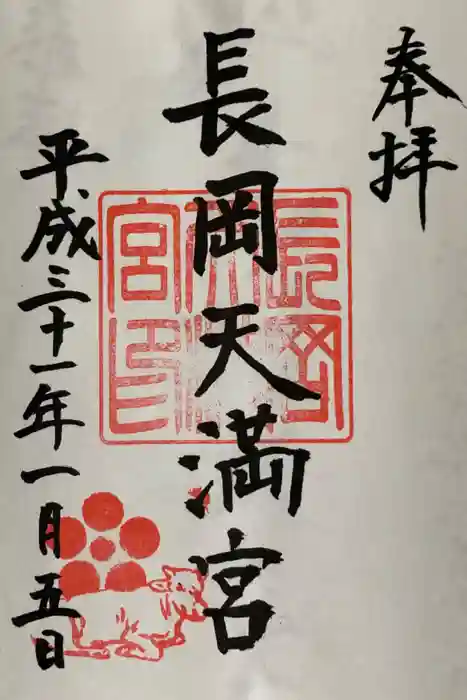 奉拝
長岡天満宮
平成三十一年一月五日
長岡天満宮印